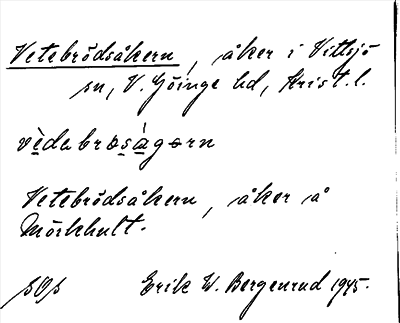 Vetebrödsåkern, åker i Vittsjö
sn, V. Göinge hd, Krist. l.
vèdabrøsàgørn
Vetebrödsåkern, åker å
Mörkhult.
Erik W. Bergenrud 1945.